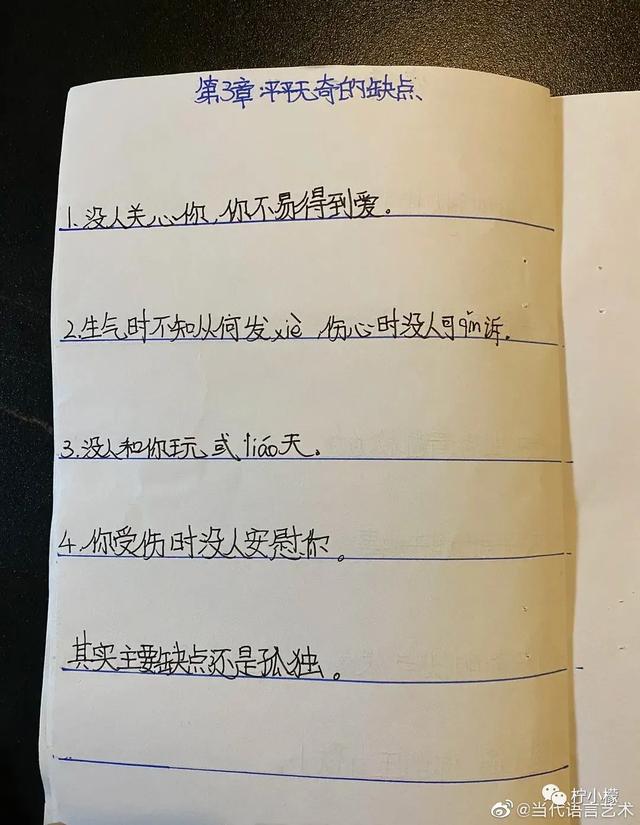 第3章:平平无奇的缺点、
1.没人关心你,你不易得到爱。
2.生气时不知从何发xiè,伤心时没人可qīn诉。
3.没人和你玩或liáo天。
4.你受伤时没人安慰你。
其实主要缺点还是孤独。
柠小檬
@当代语言艺术